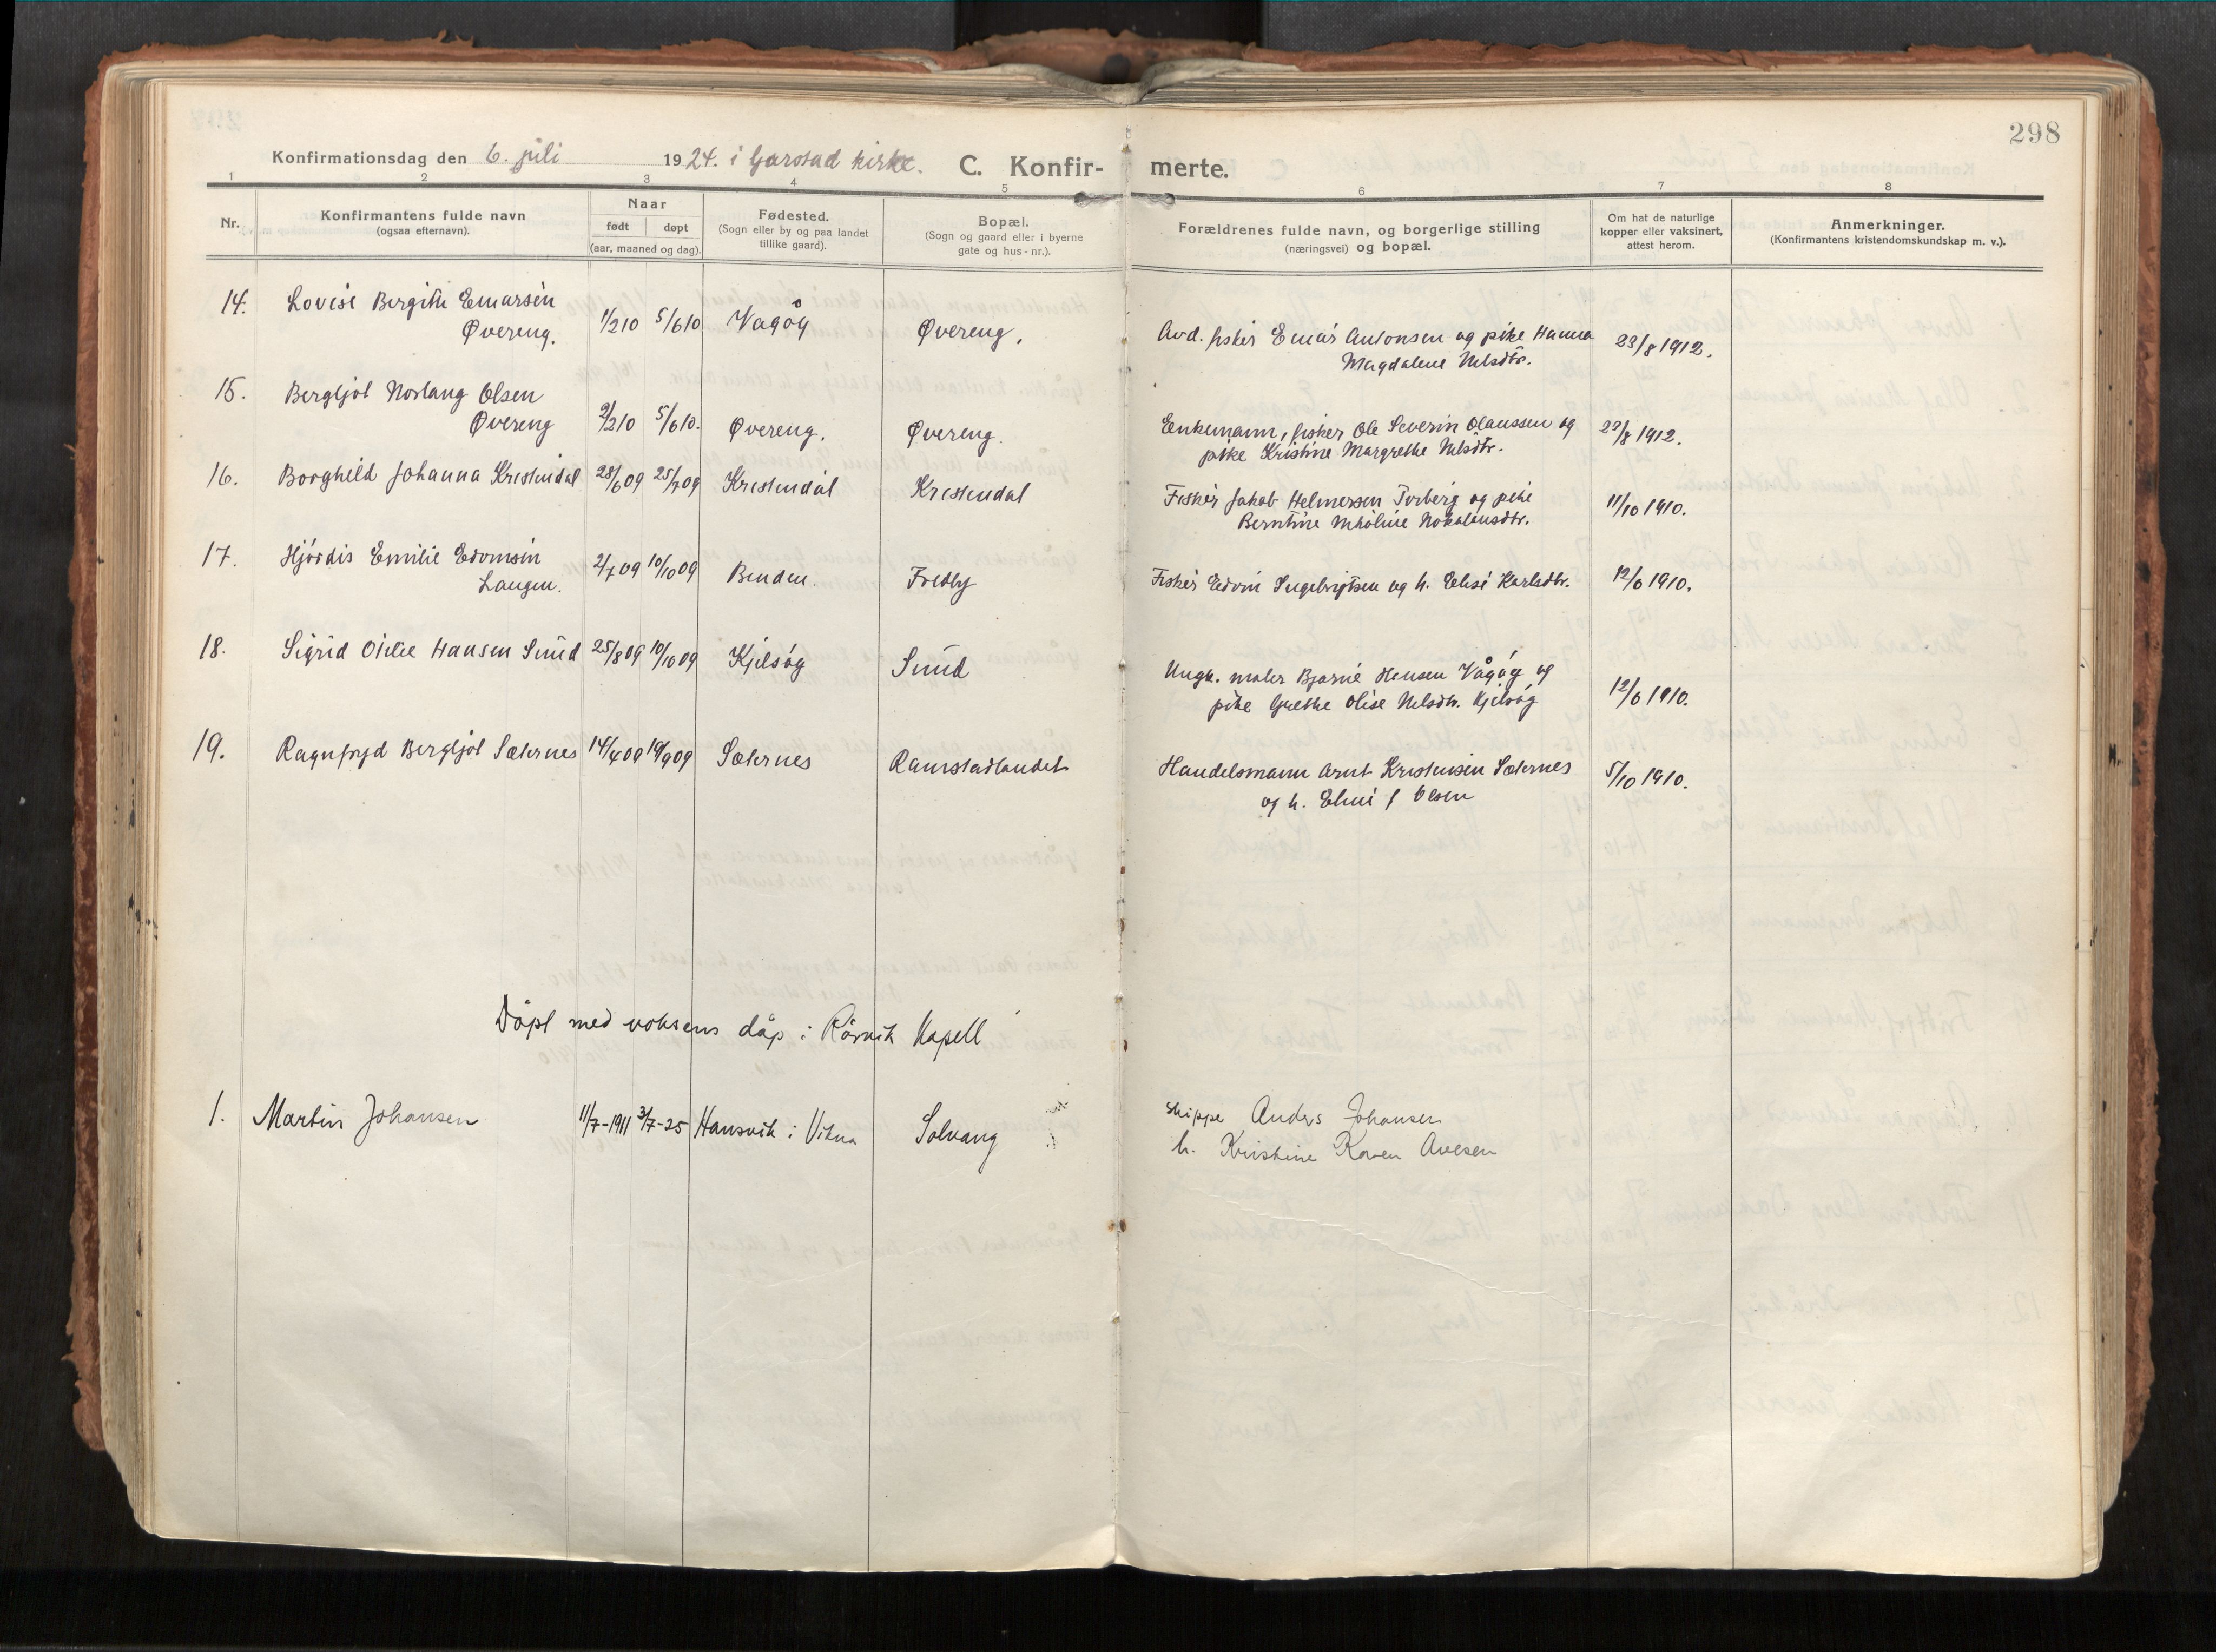 298
Konfirmationsdag den 6. juli 1924. i Garstad kirke. C. Konfir- merte.
1 2 3 4 5 6 7 8
Nr.
Konfirmantens fulde navn
(ogsaa efternavn).
Naar
født døpt
(aar, maaned og dag).
Fødested.
(Sogn eller by og paa landet
tillike gaard).
Bopæl.
(Sogn og gaard eller i byerne
gate og hus-nr.).
Forældrenes fulde navn, og borgerlige stilling
(næringsvei) og bopæl.
Om hat de naturlige
kopper eller vaksinert,
attest herom.
Anmerkninger.
(Konfirmantens kristendomskundskap m. v.).
14. Lovise Bergithe Einarsen
Øvereng. 1/210 5/610 Vågöy Øvereng. Avd. fisker Einar Antonsen og pike Hanna 23/8 1912.
Magdalene Nilsdtr.
15. Bergljot Norlaug Olsen
Øvereng 2/210 5/610. Øvereng. Øvereng. Enkemann, fisker Ole Severin Olaussen og 23/8 1912.
pike Kristine Margrethe Nilsdtr.
16. Borghild Johanna Kristendal 28/6 09 25/7 09 Kristendal Kristendal Fisker Jakob Helmersen Torberg og pike 11/10 1910.
Berntine
17. Hjördis Emilie Edvinsen
Langen. 2/7 09 10/10 09 Benden. Fredly Fisker Edvin Ingebrigtsen og h. Elise Karlsdtr. 12/6 1910.
18. Sigrid Otilie Hansen Sund 25/8 09 10/10 09 Kjelsöy Sund Ungk. maler Bjarne Hansen Vågöy og 12/6 1910.
pike Grethe Olise Nilsdtr. Kjelsöy
19. Ragnfryd Bergljot Sæternes 14/4 09 19/9 09 Sæternes Ramstadlandet Handelsmann Arnt Kristensen Sæternes 5/10 1910.
og h. Eline f Olsen
Döpt med voksens dåp i Rörvik Kapell
1. Martin Johansen 11/7-1911 3/7-25 Hansvik i Vikna Solvang Skippe Anders Johansen
h. Kristine Karen Avesen